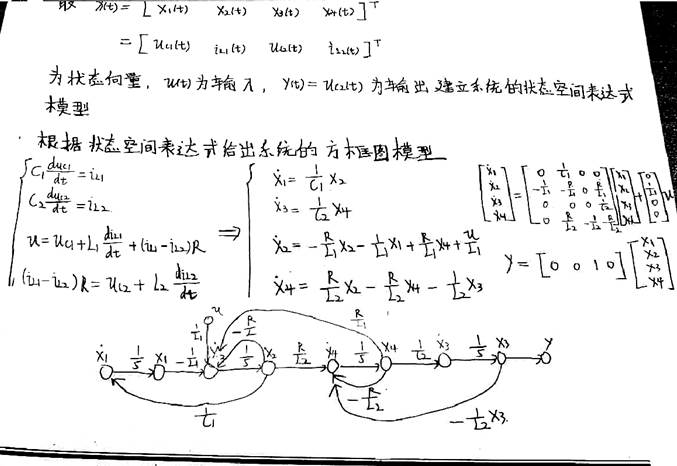 取 x(t) = [ x₁(t) x₂(t) x₃(t) x₄(t) ]ᵀ
= [ u_C1(t) i_L1(t) u_C2(t) i_L2(t) ]ᵀ
为状态向量, u(t)为输入, y(t) = u_C2(t) 为输出 建立系统的状态空间表达式
模型
· 根据状态空间表达式给出系统的方框图模型
{ C₁ du_C1/dt = i_L1
C₂ du_C2/dt = i_L2
u = u_C1 + L₁ di_L1/dt + (i_L1 - i_L2)R
(i_L1 - i_L2)R = u_C2 + L₂ di_L2/dt
⇒
{ ẋ₁ = 1/C₁ x₂
ẋ₃ = 1/C₂ x₄
ẋ₂ = -R/L₁ x₂ - 1/L₁ x₁ + R/L₁ x₄ + u/L₁
ẋ₄ = R/L₂ x₂ - R/L₂ x₄ - 1/L₂ x₃
[ẋ₁ ẋ₂ ẋ₃ ẋ₄] = [0 1/C₁ 0 0
-1/L₁ -R/L₁ 0 R/L₁
0 0 0 1/C₂
0 R/L₂ -1/L₂ -R/L₂] [x₁ x₂ x₃ x₄] + [0 1/L₁ 0 0] u
y = [0 0 1 0] [x₁ x₂ x₃ x₄]
u
1/L₁ -R/L R/L₁
ẋ₁ 1/S x₁ -1/L₁ ẋ₂ 1/S x₂ R/L₂ ẋ₄ 1/S x₄ 1/C₂ ẋ₃ 1/S x₃ y
1/C₁ -R/L₂ -1/L₂ x₃